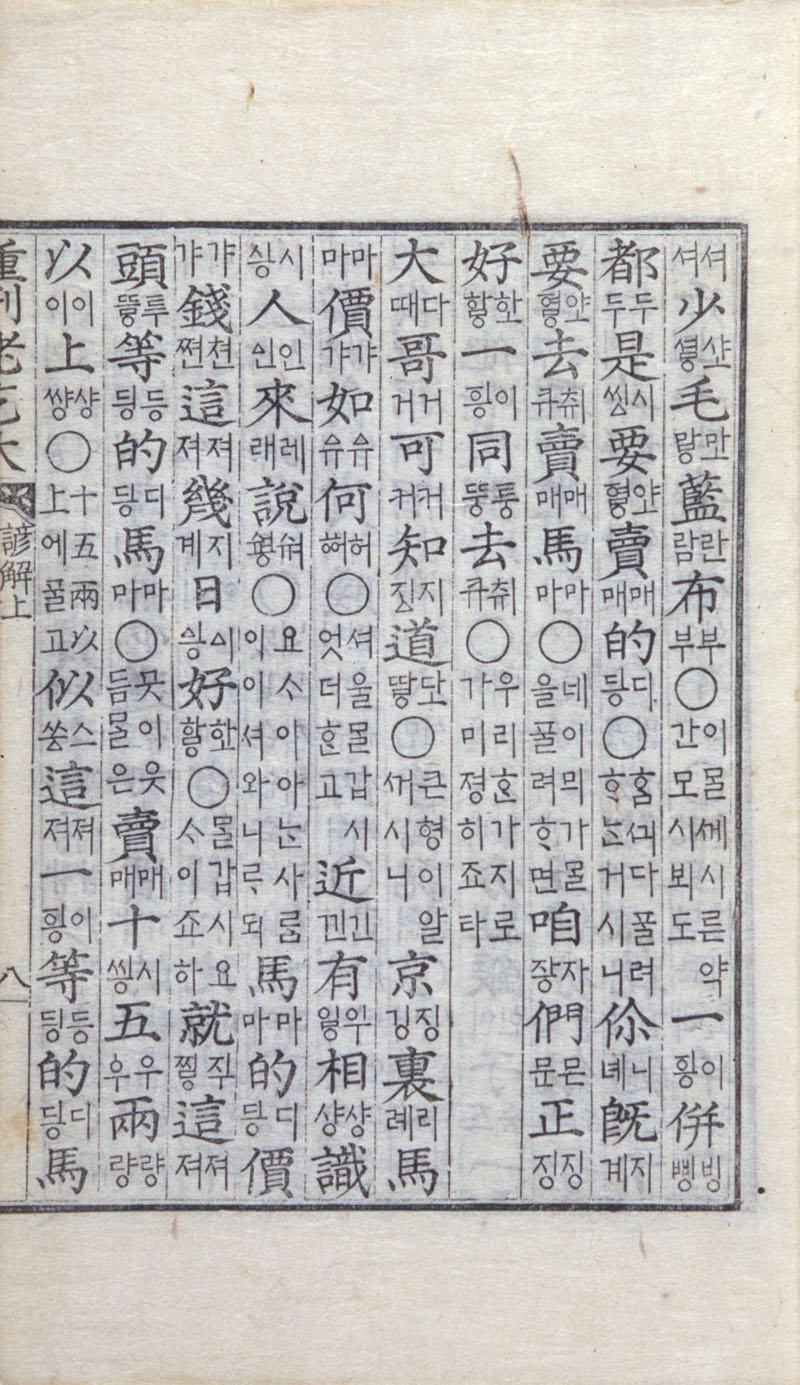 셔셔少毛藍람란布부부○이ᄆᆞᆯᄭᅦ시른약간모시뵈도一이倂삥빙
都두두是시要賣매매的딍디○ᄒᆞᆷᄭᅴ다ᄑᆞᆯ려ᄒᆞᄂᆞᆫ거시니你녜니旣계지
要去큐츄賣매매馬마마○네이믜가ᄆᆞᆯ을ᄑᆞᆯ려ᄒᆞ면咱쟝자們문믄正징징
好一힁이同뚱퉁去큐츄○우리ᄒᆞᆫ가지로가미졍히죠타
大때다哥거거可커커知짇지道○큰형이알ᄭᅥ시니京깅징裏례리馬
마마價갸갸如유유何허○셔울ᄆᆞᆯ갑시엇더ᄒᆞᆫ고近낀긴有相샹샹識
시人인인來래레說○요ᄉᆞ이아ᄂᆞᆫ사ᄅᆞᆷ이이셔와니ᄅᆞ되馬마마的딍디價
갸갸錢쪈쳔這져져幾계지日好○ᄆᆞᆯ갑시요ᄉᆞ이죠하就這져져
頭투等딍등的딍디馬마마○ᄆᆞᆺ이웃듬ᄆᆞᆯ은賣매매十씽시五우우兩량량
以이이上쌍샹○十五兩以上에ᄑᆞᆯ고似쏭스這져져一힁이等딍등的딍디馬
重刊老乞大 諺解上 八